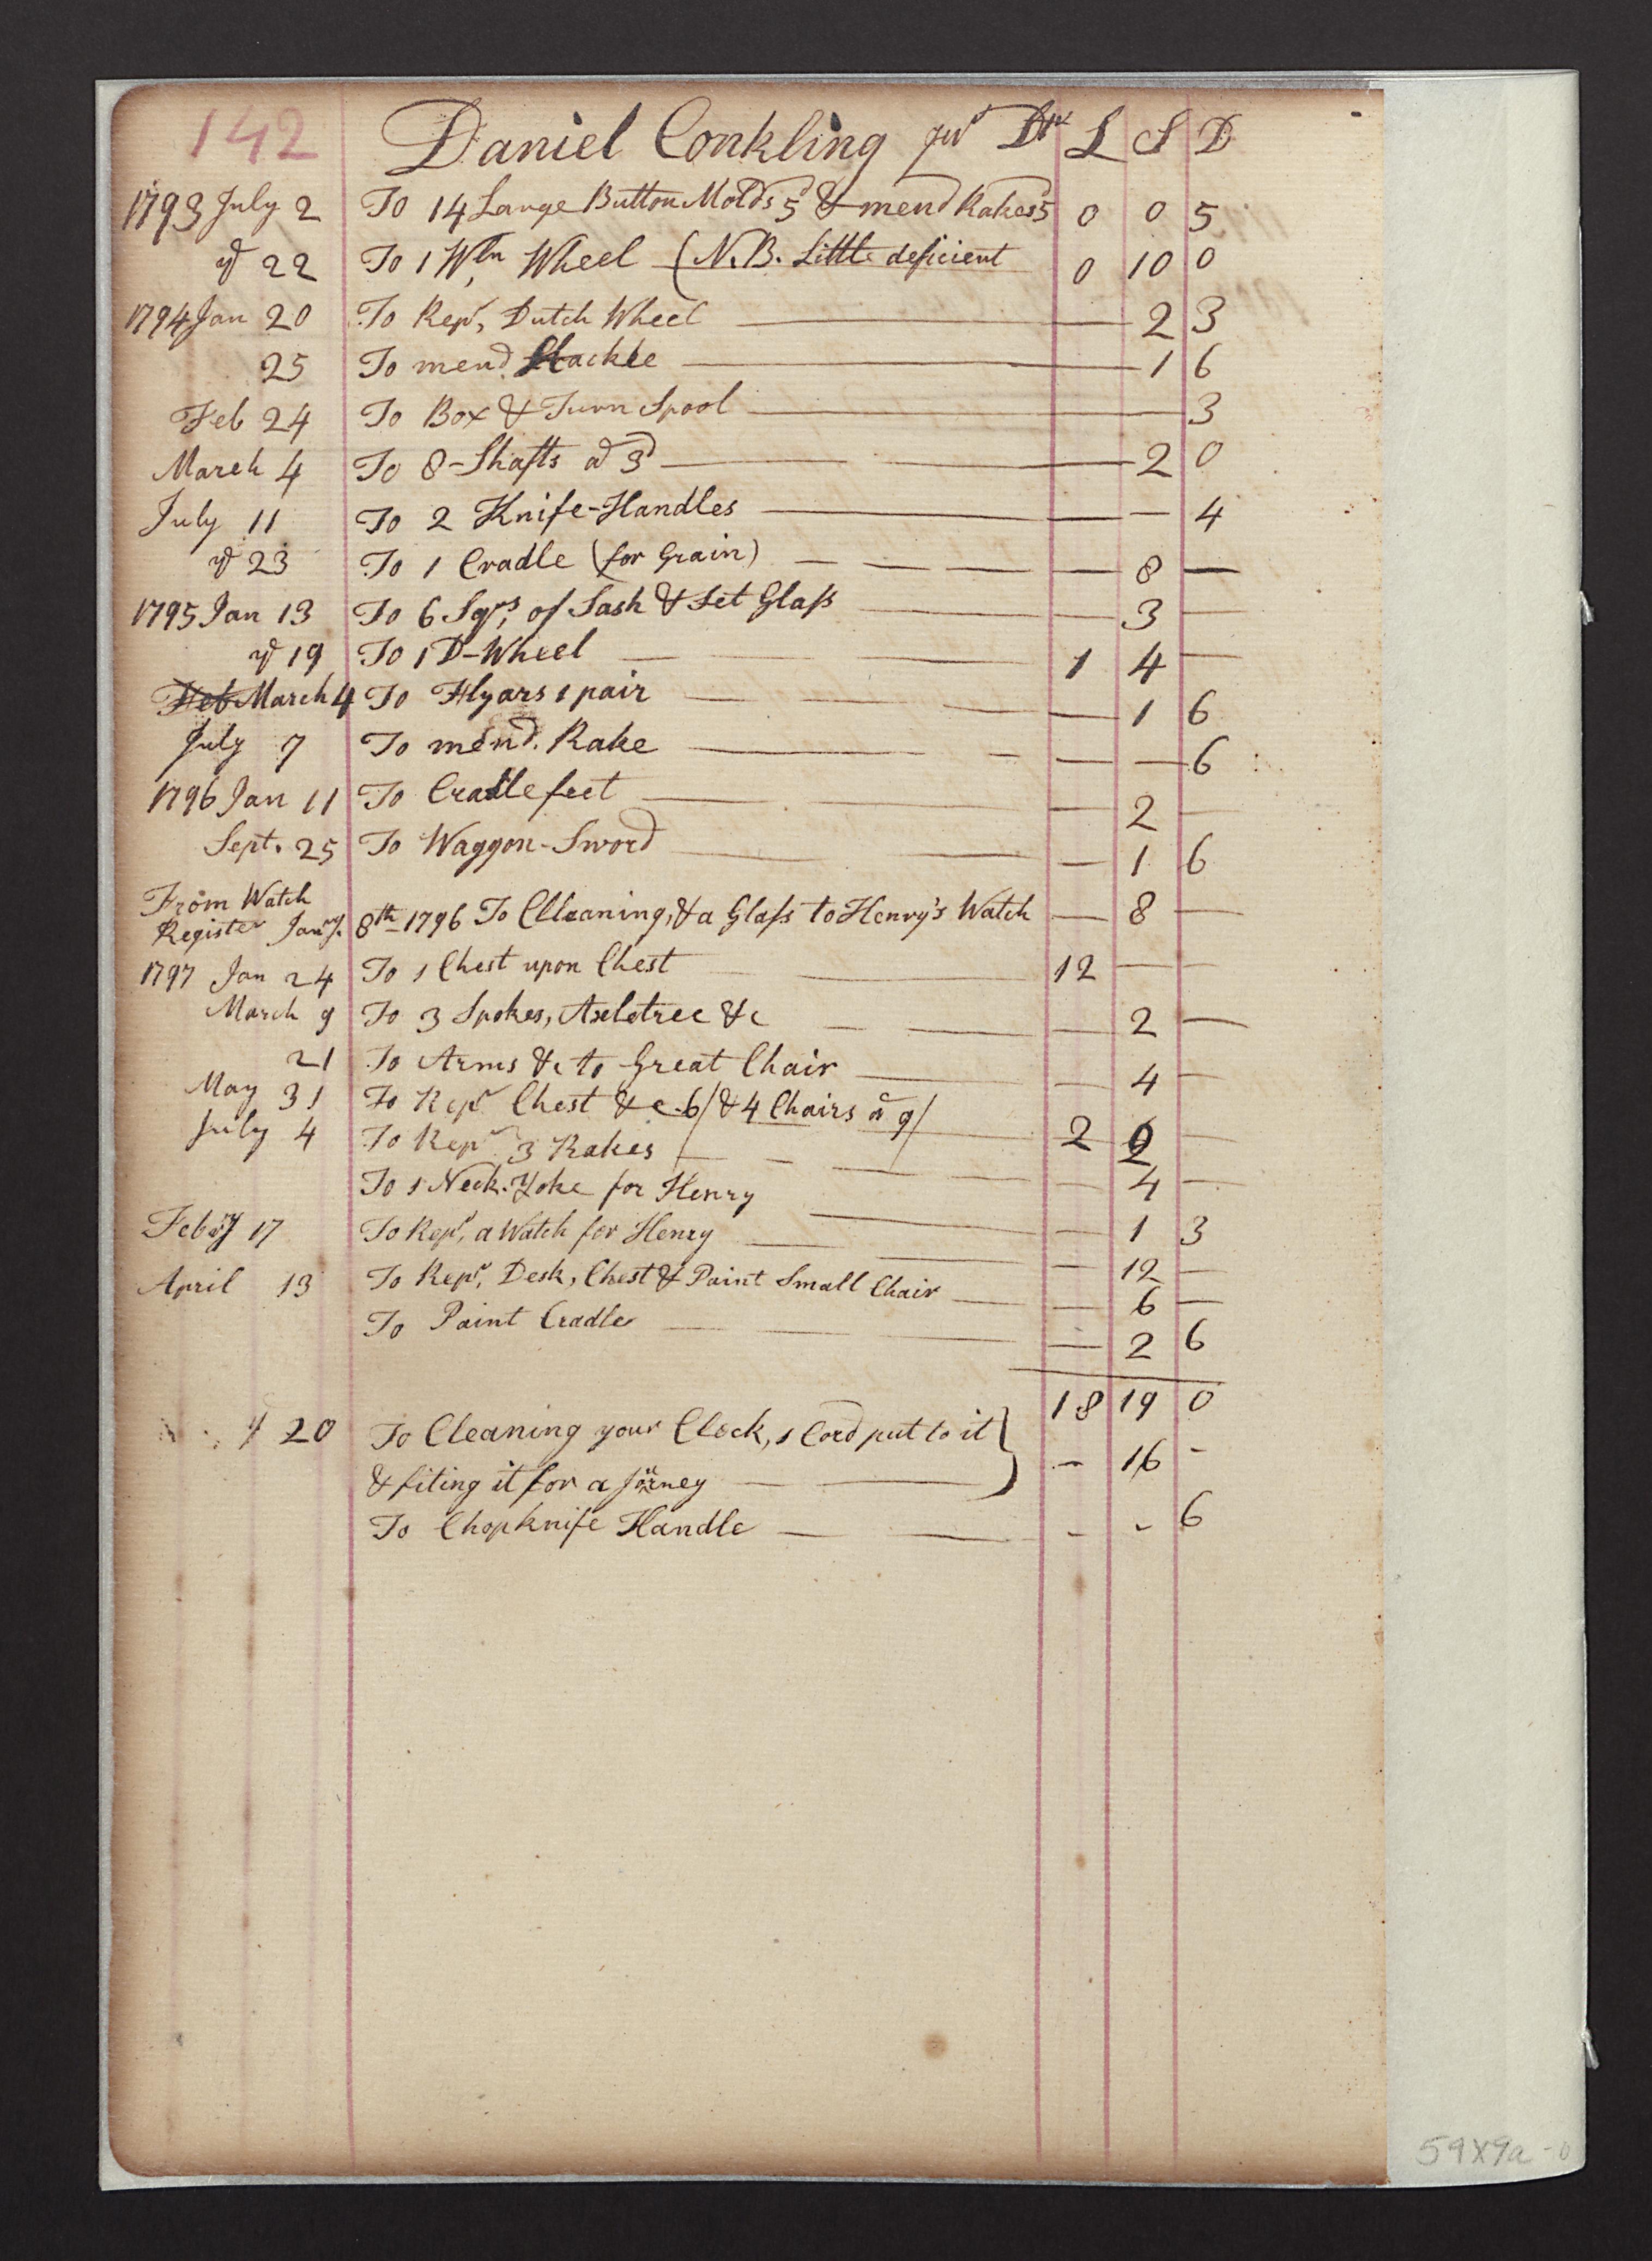 142 Daniel Conkling Junr Dr L S D
1793 July 2 To 14 Large Button Molds 5d & mend Rakes 5 0 0 5
yd 22 To 1 Wln Wheel (N.B. Little deficient 0 10 0
1794 Jan 20 To Repr, Dutch Wheel 2 3
25 To mend. Hackle 1 6
Feb 24 To Box & Turn Spool 3
March 4 To 8-Shafts ad 3d 2 0
July 11 To 2 Knife-Handles 4
yd 23 To 1 Cradle (for Grain) — 8 —
1795 Jan 13 To 6 Sqrs, of Sash & Set Glass — 3 —
yd 19 To 1 D-Wheel 1 4 —
Feb March 4 To Flyars 1 pair — 1 6
July 7 To mend. Rake — — 6
1796 Jan 11 To Cradle feet — 2 —
Sept. 25 To Waggon-Sword — 1 6
From Watch
Register Jany. 8th 1796 To Cleaning, & a Glass to Henry's Watch — 8 —
1797 Jan 24 To 1 Chest upon Chest 12 — —
March 9 To 3 Spokes, Axeletree &c — 2 —
21 To Arms &c to Great Chair — 4 —
May 31 To Repr Chest & c. 6/ & 4 Chairs a 9/ 2 2 —
July 4 To Repr 3 Rakes — 4 —
To 1 Neck-Yoke for Henry — 1 3
Feby 17 To Repr, a Watch for Henry — 12 —
April 13 To Repr, Desk, Chest & Paint Small Chair — 6 —
To Paint Cradle — 2 6
18 19 0
yd 20 To Cleaning your Clock, 1 Cord put to it
& fiting it for a Jorney — 16 -
To Chopknife Handle - - 6
59x9a